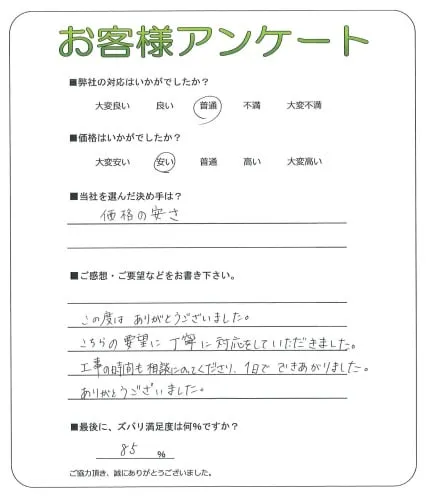 お客様アンケート
■弊社の対応はいかがでしたか？
大変良い 良い 普通 不満 大変不満
■価格はいかがでしたか？
大変安い 安い 普通 高い 大変高い
■当社を選んだ決め手は？
価格の安さ
■ご感想・ご要望などをお書き下さい。
この度は ありがとうございました。
こちらの要望に 丁寧に対応をしていただきました。
工事の時間も相談にのってくださり、1日で できあがりました。
ありがとうございました。
■最後に、ズバリ満足度は何％ですか？
85 ％
ご協力頂き、誠にありがとうございました。